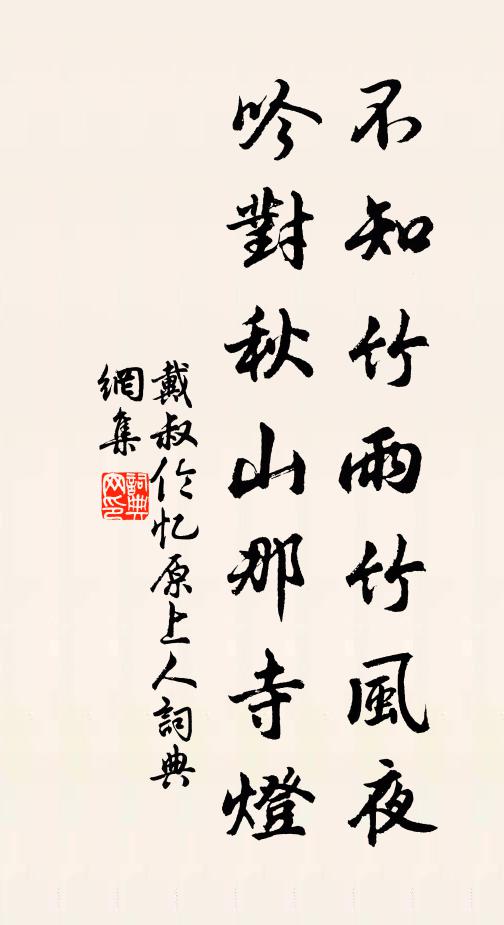 不知竹雨竹風夜
吟對秋山那寺燈
戴叔伦忆原上人詞典
網集
詞典
网印